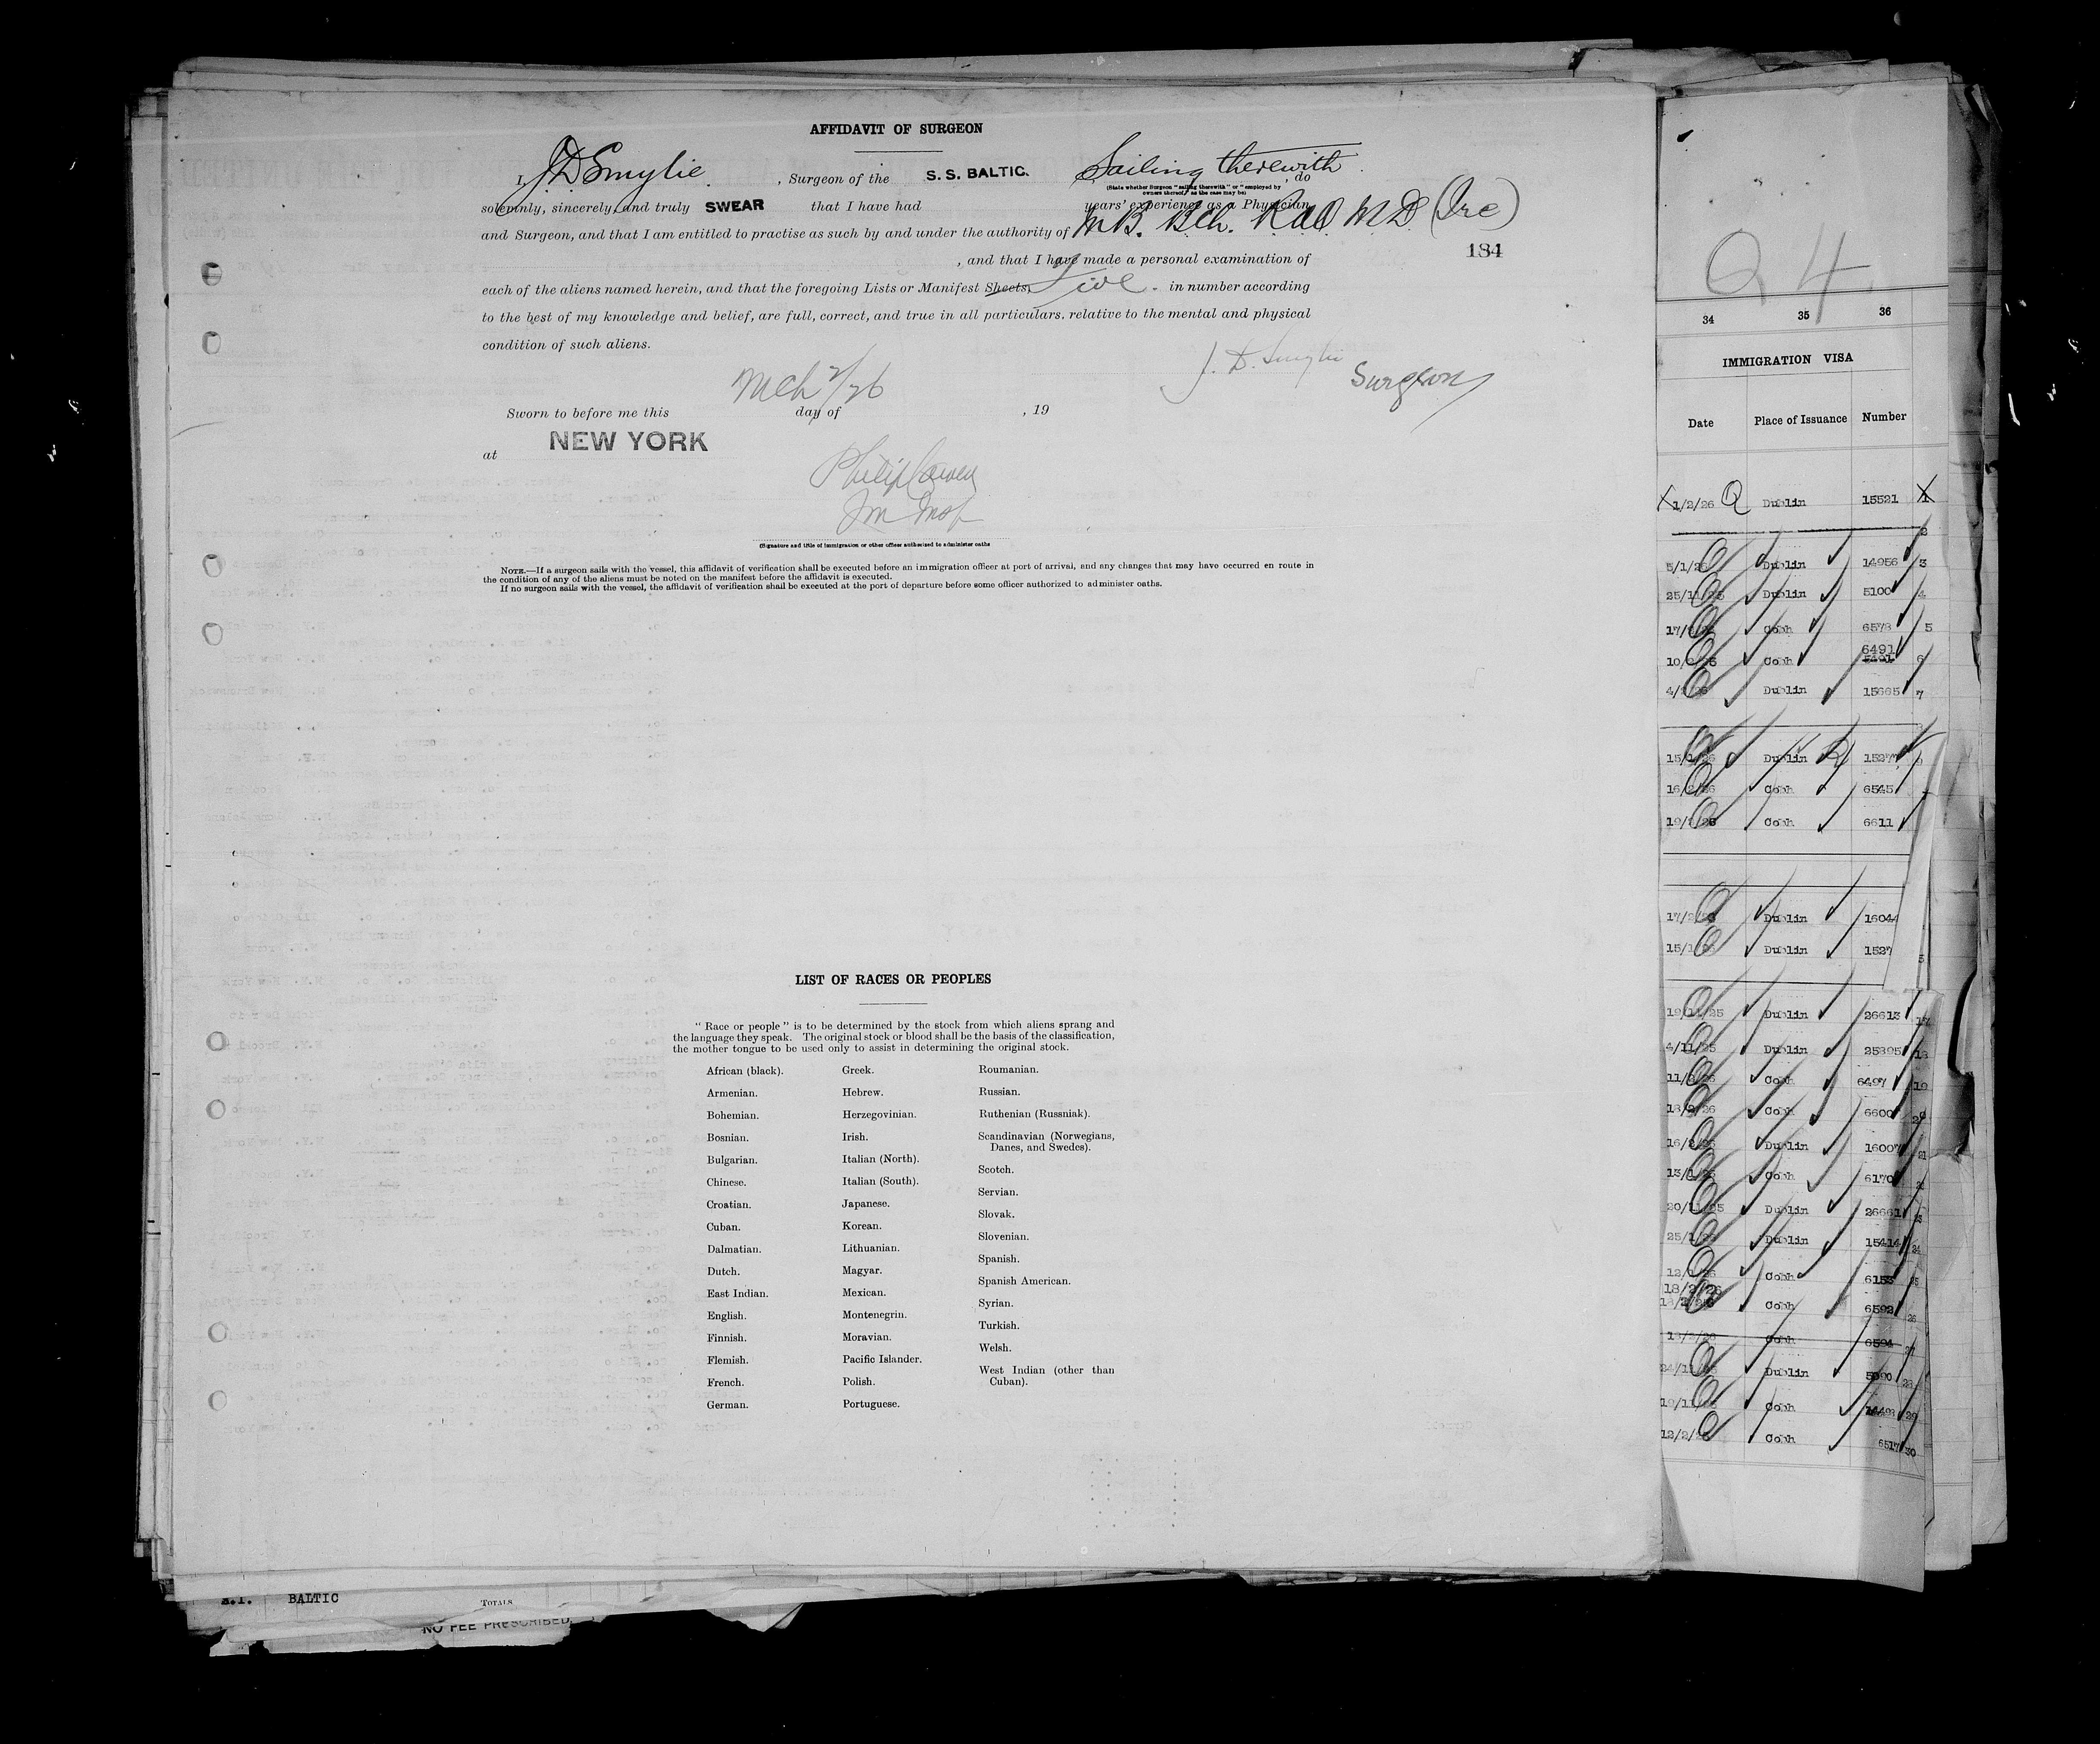 AFFIDAVIT OF SURGEON
I, J D Smylie, Surgeon of the S. S. BALTIC. Sailing therewith, do
(State whether Surgeon "sailing therewith" or "employed by owners thereof," as the case may be)
solemnly, sincerely, and truly SWEAR that I have had years' experience as a Physician
and Surgeon, and that I am entitled to practise as such by and under the authority of M.B. B.Ch. M.D. (Ire)
184
, and that I have made a personal examination of
each of the aliens named herein, and that the foregoing Lists or Manifest Sheets, five. in number according
to the best of my knowledge and belief, are full, correct, and true in all particulars. relative to the mental and physical
condition of such aliens.
J. D. Smylie Surgeon
Mch 2/26
Sworn to before me this day of , 19
at NEW YORK
Philip Cowen
Im Insp
(Signature and title of immigration or other officer authorized to administer oaths
NOTE.—If a surgeon sails with the vessel, this affidavit of verification shall be executed before an immigration officer at port of arrival, and any changes that may have occurred en route in
the condition of any of the aliens must be noted on the manifest before the affidavit is executed.
If no surgeon sails with the vessel, the affidavit of verification shall be executed at the port of departure before some officer authorized to administer oaths.
LIST OF RACES OR PEOPLES
" Race or people " is to be determined by the stock from which aliens sprang and
the language they speak. The original stock or blood shall be the basis of the classification,
the mother tongue to be used only to assist in determining the original stock.
African (black).
Armenian.
Bohemian.
Bosnian.
Bulgarian.
Chinese.
Croatian.
Cuban.
Dalmatian.
Dutch.
East Indian.
English.
Finnish.
Flemish.
French.
German.
Greek.
Hebrew.
Herzegovinian.
Irish.
Italian (North).
Italian (South).
Japanese.
Korean.
Lithuanian.
Magyar.
Mexican.
Montenegrin.
Moravian.
Pacific Islander.
Polish.
Portuguese.
Roumanian.
Russian.
Ruthenian (Russniak).
Scandinavian (Norwegians,
Danes, and Swedes).
Scotch.
Servian.
Slovak.
Slovenian.
Spanish.
Spanish American.
Syrian.
Turkish.
Welsh.
West Indian (other than
Cuban).
Q 4
34 35 36
IMMIGRATION VISA
Date Place of Issuance Number
1/2/26 Q Dublin 15521 1
2
5/1/26 Dublin 14956 3
25/11/25 Dublin 5100 4
Cobh 6578 5
6491
Cobh 5491 6
Dublin 15665 7
15/1/26 Dublin 1527
16/2/26 Cobh 6545
Cobh 6611
Dublin 1604
15/1/26 Dublin 1527
19/11/25 Dublin 26613 17
4/11/25 Dublin 25895 18
Cobh 6497 19
18/2/26 Cobh 6600
Dublin 16007 21
Cobh 6170 22
20/11/25 Dublin 26661 23
Dublin 15414 24
12/1/26 Cobh 6153 25
18/2/26
Cobh 6592 26
Cobh 6594 27
Dublin 5090 28
Cobh 29
Cobh 6517 30
BALTIC
TOTALS
NO FEE PRESCRIBED.